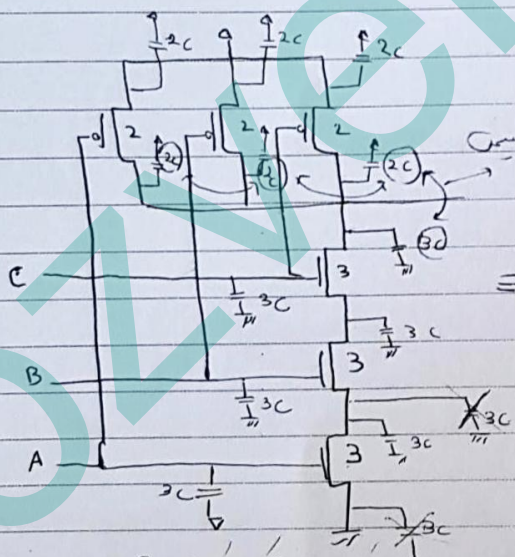 2C 2C 2C
2 2 2
2C 2C 2C
3C
C 3
3C
3C
B 3
3C
3C
A 3C
3
3C
3C